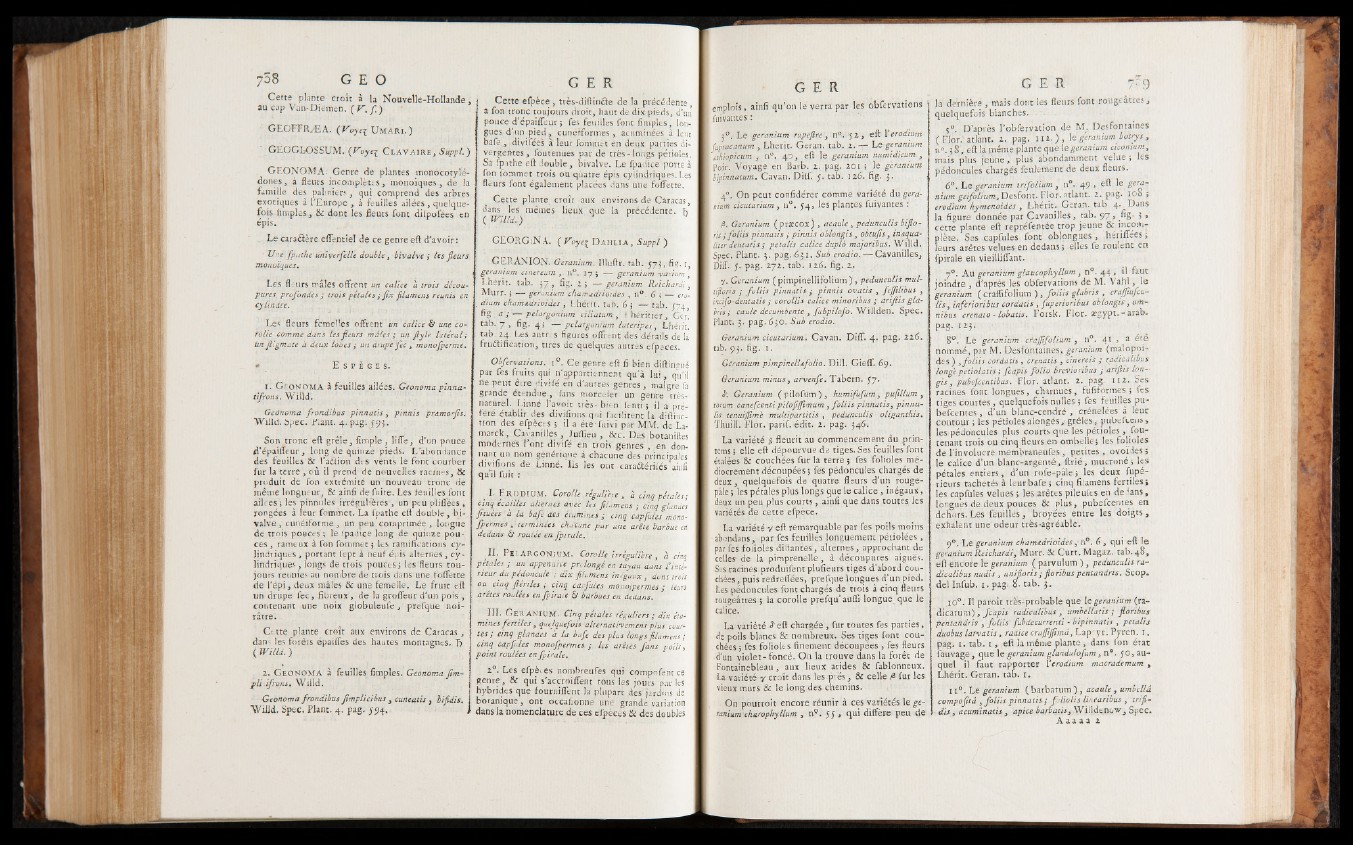 738 G E O
Cette plante croît à la Nouvelle-Hollande,
au cap Van-Diemen. (V. f.)
GEOFFRÆA. (Voyez UMARI.)
GEOGLOSSUM. (Voyez CLAVAIRE, Suppl.)
GEONOMA. Genre de plantes monocotylé-
dones, à fleurs incomplètes, monoïques, de la
famille des palmiers, qui comprend des arbres
exotiques à l'Europe, à feuilles ailées, quelque-
fois simples, & dont les fleurs font difpofées en
épis.
Le caractère effentiel de ce genre eft d'avoir:
Une fpathe univerfelle double, bivalve; les fleurs
monoïques.
Les fleurs mâles offrent un calice à trois décou-
pures profondes; trois pétales; fix filamens réunis en
cylindre.
Les fleurs femelles offrent un calice & une co-
rolle comme dans les fleurs mâles; un ftyle latéral;
un ftigmate à deux lobes; un drupe fec, monofperme.
ESPÈCES.
1. GEONOMA à feuilles ailées. Geonoma pinna-
tifrons. Willd.
Geonoma frondibus pinnatis, pinnis præmorfis.
Willd. Spec. Plant. 4. pag. 593.
Son tronc eft grêle, fimple, liffe, d'un pouce
d'épaiffeur, long de quinze pieds. L'abondance
des feuilles & l'action des vents le font courber
fur la terre, où il prend de nouvelles racines, &
produit de fon extrémité un nouveau tronc de
même longueur, & ainfi de fuite. Les feuilles font
ailées; les pinnules irrégulières, un peu pliffées,
rongées à leur fommet. La fpathe eft double, bi-
valve, cunéiforme, un peu comprimée, longue
de trois pouces; le fpadice long de quinze pou-
ces, rameux à fon fommet; les ramifications cy-
lindriques, portant fept à neuf épis alternes, cy-
lindriques, longs de trois pouces; les fleurs tou-
jours réunies au nombre de trois dans une foffette
de l'épi, deux mâles & une femelle. Le fruit eft
un drupe fec, fibreux, de la groffeur d'un pois,
contenant une noix globuleufe, prefque noi-
râtre.
Cette plante croît aux environs de Caracas,
dans les forêts épaiffes des hautes montagnes. ♄
(Willd.)
2. GEONOMA à feuilles fimples. Geonoma fim-
plicifrons. Willd.
Geonoma frondibus fimplicibus, cuneatis, bifidis.
Willd. Spec. Plant. 4. pag. 594.
G E R
Cette efpèce, très-diftincte de la précédente,
a fon tronc toujours droit, haut de dix pieds, d'un
pouce d'épaiffeur; fes feuilles font fimples, lon-
gues d'un pied, cunéiformes, acuminées à leur
bafe, divifées à leur fommet en deux parties di-
vergentes, foutenues par de très-longs pétioles.
Sa fpathe eft double, bivalve. Le fpadice porte à
fon fommet trois ou quatre épis cylindriques. Les
fleurs font également placées dans une foffette.
Cette plante croît aux environs de Caracas,
dans les mêmes lieux que la précédente. ♄
(Willd.)
GEORGINA. (Voyez DAHLIA, Suppl.)
GERANION. Geranium. Illuftr. tab. 573, fig. 1,
geranium cinereum, n°. 17; — geranium varium,
Lhérit. tab. 37, fig. 2; — geranium Reichardi,
Murr.; — geranium chamædrioides, n°. 6; — ero-
dium chamædrioides, Lhérit. tab. 6; — tab. 574,
fig. a; — pelargonium ciliatum, Lhéritier, Ger.
tab. 7, fig. 4; — pelargonium lateripes, Lhérit.
tab 24. Les autres figures offrent des détails de la
fructification, tirés de quelques autres efpèces.
Obfervations. 1°. Ce genre eft fi bien diftingué
par fes fruits qui n'appartiennent qu'à lui, qu'il
ne peut être divifé en d'autres genres, malgré fa
grande étendue, fans morceler un genre très-
naturel. Linné l'avoit très-bien fenti; il a pré-
féré établir des divifions qui facilitent la diftinc-
tion des efpèces; il a été fuivi par MM. de La-
marck, Cavanilles, Juffieu, &c. Des botaniftes
modernes l'ont divifé en trois genres, en don-
nant un nom générique à chacune des principales
divifions de Linné. Ils les ont caractérifés ainfi
qu'il fuit:
I. ERODIUM. Corolle régulière, à cinq pétales;
cinq écailles alternes avec les filamens; cinq glandes
fituées à la bafe des étamines; cinq capfules mono-
fpermes, terminées chacune par une arête barbue en
dedans & roulée en fpirale.
II. PELARGONIUM. Corolle irrégulière, à cinq
pétales; un appendice prolongé en tuyau dans l'inté-
rieur du pédoncule; dix filamens inégaux, dont trois
ou cinq ftériles; cinq capfules monofpermes; leurs
arêtes roulées en fpirale & barbues en dedans.
III. GERANIUM. Cinq pétales réguliers; dix éta-
mines fertiles, quelquefois alternativement plus cour-
tes; cinq glandes à la bafe des plus longs filamens;
cinq capfules monofpermes; les arêtes fans poils,
point roulées en fpirale.
2°. Les efpèces nombreufes qui compofent ce
genre, & qui s'accroiffent tous les jours par les
hybrides que fourniffent la plupart des jardins de
botanique, ont occafionné une grande variation
dans la nomenclature de ces efpèces & des doubles
G E R
emplois, ainfi qu'on le verra par les obfervations
fuivantes:
3°. Le geranium rupeftre, n°. 52, eft l'erodium
fupracanum, Lhérit. Geran. tab. 2. — Le geranium
æthiopicum, n°. 40, eft le geranium numidicum,
Poir. Voyage en Barb. 2. pag. 201; le geranium
bipinnatum. Cavan. Diff. 5. tab. 126. fig. 3.
4°. On peut confidérer comme variété du gera-
nium cicutarium, n°. 54, les plantes fuivantes:
β. Geranium (præcox), acaule, pedunculis biflo-
ris; foliis pinnatis; pinnis oblongis, obtufis, inæqua-
liter dentatis; petalis calice duplò majoribus. Willd.
Spec. Plant. 3. pag. 631. Sub erodio. — Cavanilles,
Diff. 5. pag. 272. tab. 126. fig. 2.
γ. Geranium (pimpinellifolium), pedunculis mul-
tifloris; foliis pinnatis; pinnis ovatis, feffilibus,
incifo-dentatis; corollis calice minoribus; ariftis gla-
bris; caule decumbente, fubpilofo. Willden. Spec.
Plant. 3. pag. 630. Sub erodio.
Geranium cicutarium. Cavan. Diff. 4. pag. 226.
tab. 95. fig. 1.
Geranium pimpinellæfolio. Dill. Gieff. 69.
Geranium minus, arvenfe. Tabern. 57.
δ. Geranium (pilofum), humifufum, pufillum,
totum canefcenti pilofiffimum, foliis pinnatis, pinnu-
lis tenuiffimè multipartitis, pedunculis oliganthis.
Thuill. Flor. parif. édit. 2. pag. 346.
La variété β fleurit au commencement du prin-
tems; elle eft dépourvue de tiges. Ses feuilles font
étalées & couchées fur la terre; fes folioles mé-
diocrement découpées; fes pédoncules chargés de
deux, quelquefois de quatre fleurs d'un rouge-
pâle; les pétales plus longs que le calice, inégaux,
deux un peu plus courts, ainfi que dans toutes les
variétés de cette efpèce.
La variété γ eft remarquable par fes poils moins
abondans, par fes feuilles longuement pétiolées,
par fes folioles diftantes, alternes, approchant de
celles de la pimprenelle, à découpures aiguës.
Ses racines produifent plufieurs tiges d'abord cou-
chées, puis redreffées, prefque longues d'un pied.
Les pédoncules font chargés de trois à cinq fleurs
rougeâtres; la corolle prefqu'auffi longue que le
calice.
La variété δ eft chargée, fur toutes fes parties,
de poils blancs & nombreux. Ses tiges font cou-
chées; fes folioles finement découpées, fes fleurs
d'un violet-foncé. On la trouve dans la forêt de
Fontainebleau, aux lieux arides & fablonneux.
La variété γ croît dans les prés, & celle β fur les
vieux murs & le long des chemins.
On pourroit encore réunir à ces variétés le ge-
ranium chærophyllum, n°. 55, qui diffère peu de
G E R 739
la dernière, mais dont les fleurs font rougeâtres,
quelquefois blanches.
5°. D'après l'obfervation de M. Desfontaines
(Flor. atlant. 2. pag. 112.), le geranium botrys,
n°. 38, eft la même plante que le geranium ciconium,
mais plus jeune, plus abondamment velue; les
pédoncules chargés feulement de deux fleurs.
6°. Le geranium trifolium, n°. 49, eft le gera-
nium geifolium, Desfont. Flor. atlant. 2. pag. 108;
erodium hymenodes, Lhérit. Geran. tab 4. Dans
la figure donnée par Cavanilles, tab. 97, fig. 3,
cette plante eft repréfentée trop jeune & incom-
plète. Ses capfules font oblongues, hériffées;
leurs arêtes velues en dedans; elles fe roulent en
fpirale en vieilliffant.
7°. Au geranium glaucophyllum, n°. 44, il faut
joindre, d'après les obfervations de M. Vahl, le
geranium (craffifolium), foliis glabris, craffiufcu-
lis, inferioribus cordatis, fuperioribus oblongis, om-
nibus crenato-lobatis. Forsk. Flor. ægypt.-arab.
pag. 123.
8°. Le geranium craffifolium, n°. 41, a été
nommé, par M. Desfontaines, geranium (malopoi-
des), foliis cordatis, crenatis, cinereis; radicalibus
longè petiolatis; fcapis folio brevioribus; ariftis lon-
gis, pubefcentibus. Flor. atlant. 2. pag. 112. Ses
racines font longues, charnues, fufiformes; fes
tiges courtes, quelquefois nulles; fes feuilles pu-
befcentes, d'un blanc-cendré, crénelées à leur
contour; les pétioles alongés, grêles, pubefcens,
les pédoncules plus courts que les pétioles, fou-
tenant trois ou cinq fleurs en ombelle; les folioles
de l'involucre membraneufes, petites, ovoïdes;
le calice d'un blanc-argenté, ftrié, mucroné, les
pétales entiers, d'un rofe-pâle; les deux fupé-
rieurs tachetés à leur bafe; cinq filamens fertiles;
les capfules velues; les arêtes pileufes en dedans,
longues de deux pouces & plus, pubefcentes en
dehors. Les feuilles, broyées entre les doigts,
exhalent une odeur très-agréable.
9°. Le geranium chamædrioides, n°. 6, qui eft le
geranium Reichardi, Murr. & Curt. Magaz. tab. 48,
eft encore le geranium (parvulum), pedunculis ra-
dicalibus nudis, unifloris; floribus pentandris. Scop.
del Infub. 1. pag. 8. tab. 3.
10°. Il paroît très-probable que le geranium (ra-
dicatum), fcapis radicalibus, umbellatis; floribus
pentandris, foliis fubdecurrenti-bipinnatis, petalis
duobus larvatis, radice craffiffimâ, Lapeyr. Pyren. 1.
pag. 1. tab. 1, eft la même plante, dans fon état
fauvage, que le geranium glandulofum, n°. 50, au-
quel il faut rapporter l'erodium macrademum,
Lhérit. Geran. tab. 1.
11°. Le geranium (barbatum), acaule, umbellâ
compofitâ, foliis pinnatis; foliolis linearibus, trifi-
dis, acuminatis, apice barbatis, Willdenow, Spec.
A a a a a 2